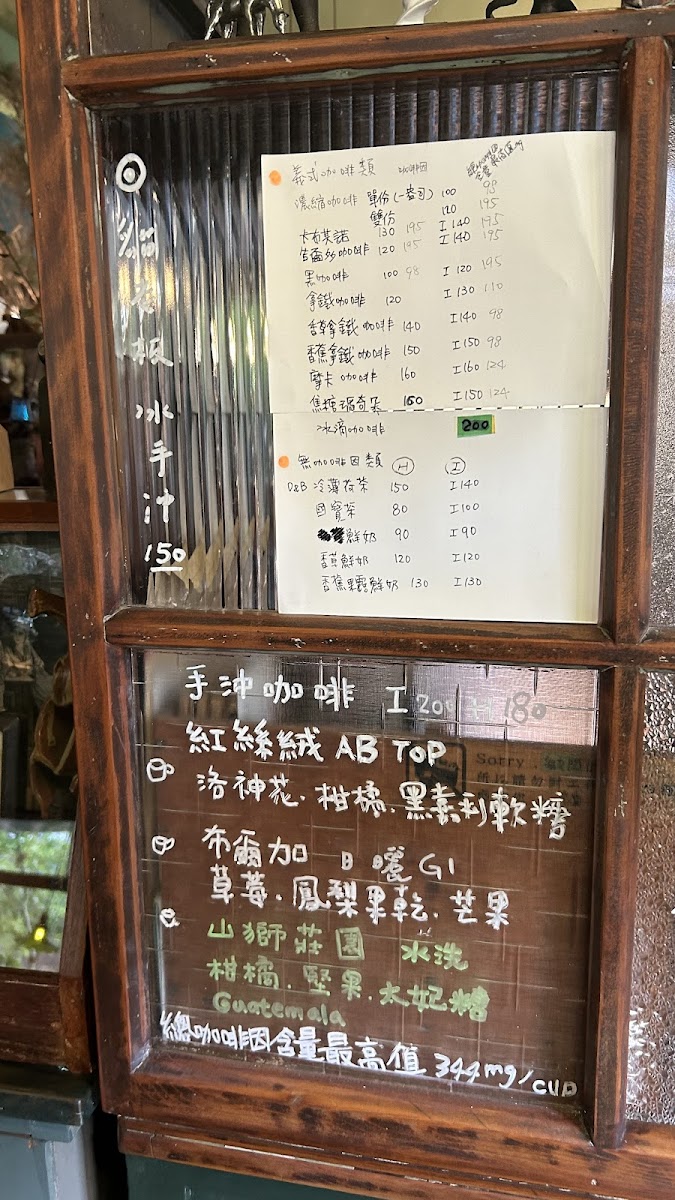 ◎
貓老板
冰手沖
150
義式咖啡類 咖啡因
濃縮咖啡 單份(一盎司) 100 98
雙份 120 195
卡布其諾 130 195 I 140 195
120 195 I 140 195
黑咖啡 100 98 I 120 195
拿鐵咖啡 120 I 130 110
香草拿鐵咖啡 140 I 140 98
香蕉拿鐵咖啡 150 I 150 98
摩卡咖啡 160 I 160 124
焦糖瑪奇朵 160 I 150 124
冰滴咖啡 200
無咖啡因類 H I
D&B 冷薄荷茶 150 I 140
國寶茶 80 I 100
鮮奶 90 I 90
香草鮮奶 120 I 120
香蕉果露鮮奶 130 I 130
手沖咖啡 I 200 H 180
紅絲絨 AB TOP
洛神花.柑橘.黑嘉利軟糖
布爾加 日曬 G1
草莓.鳳梨果乾.芒果
山獅莊園 水洗
柑橘.堅果.太妃糖
Guatemala
總咖啡因含量最高值 344mg/cup
Sorry